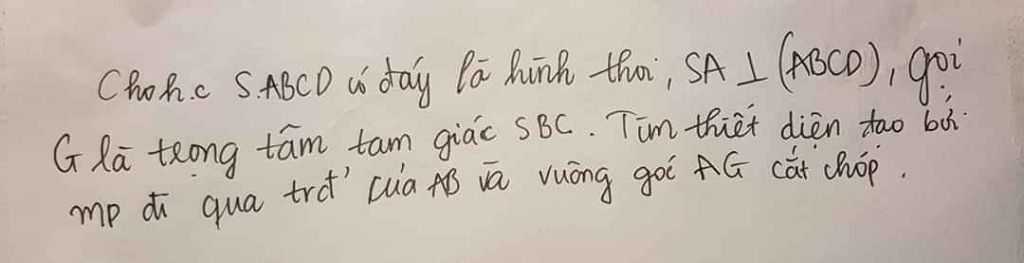 Cho h.c S.ABCD có đáy là hình thoi, SA ⊥ (ABCD), gọi
G là trọng tâm tam giác SBC. Tìm thiết diện tạo bởi
mp đi qua trđ' của AB và vuông góc AG cắt chóp.